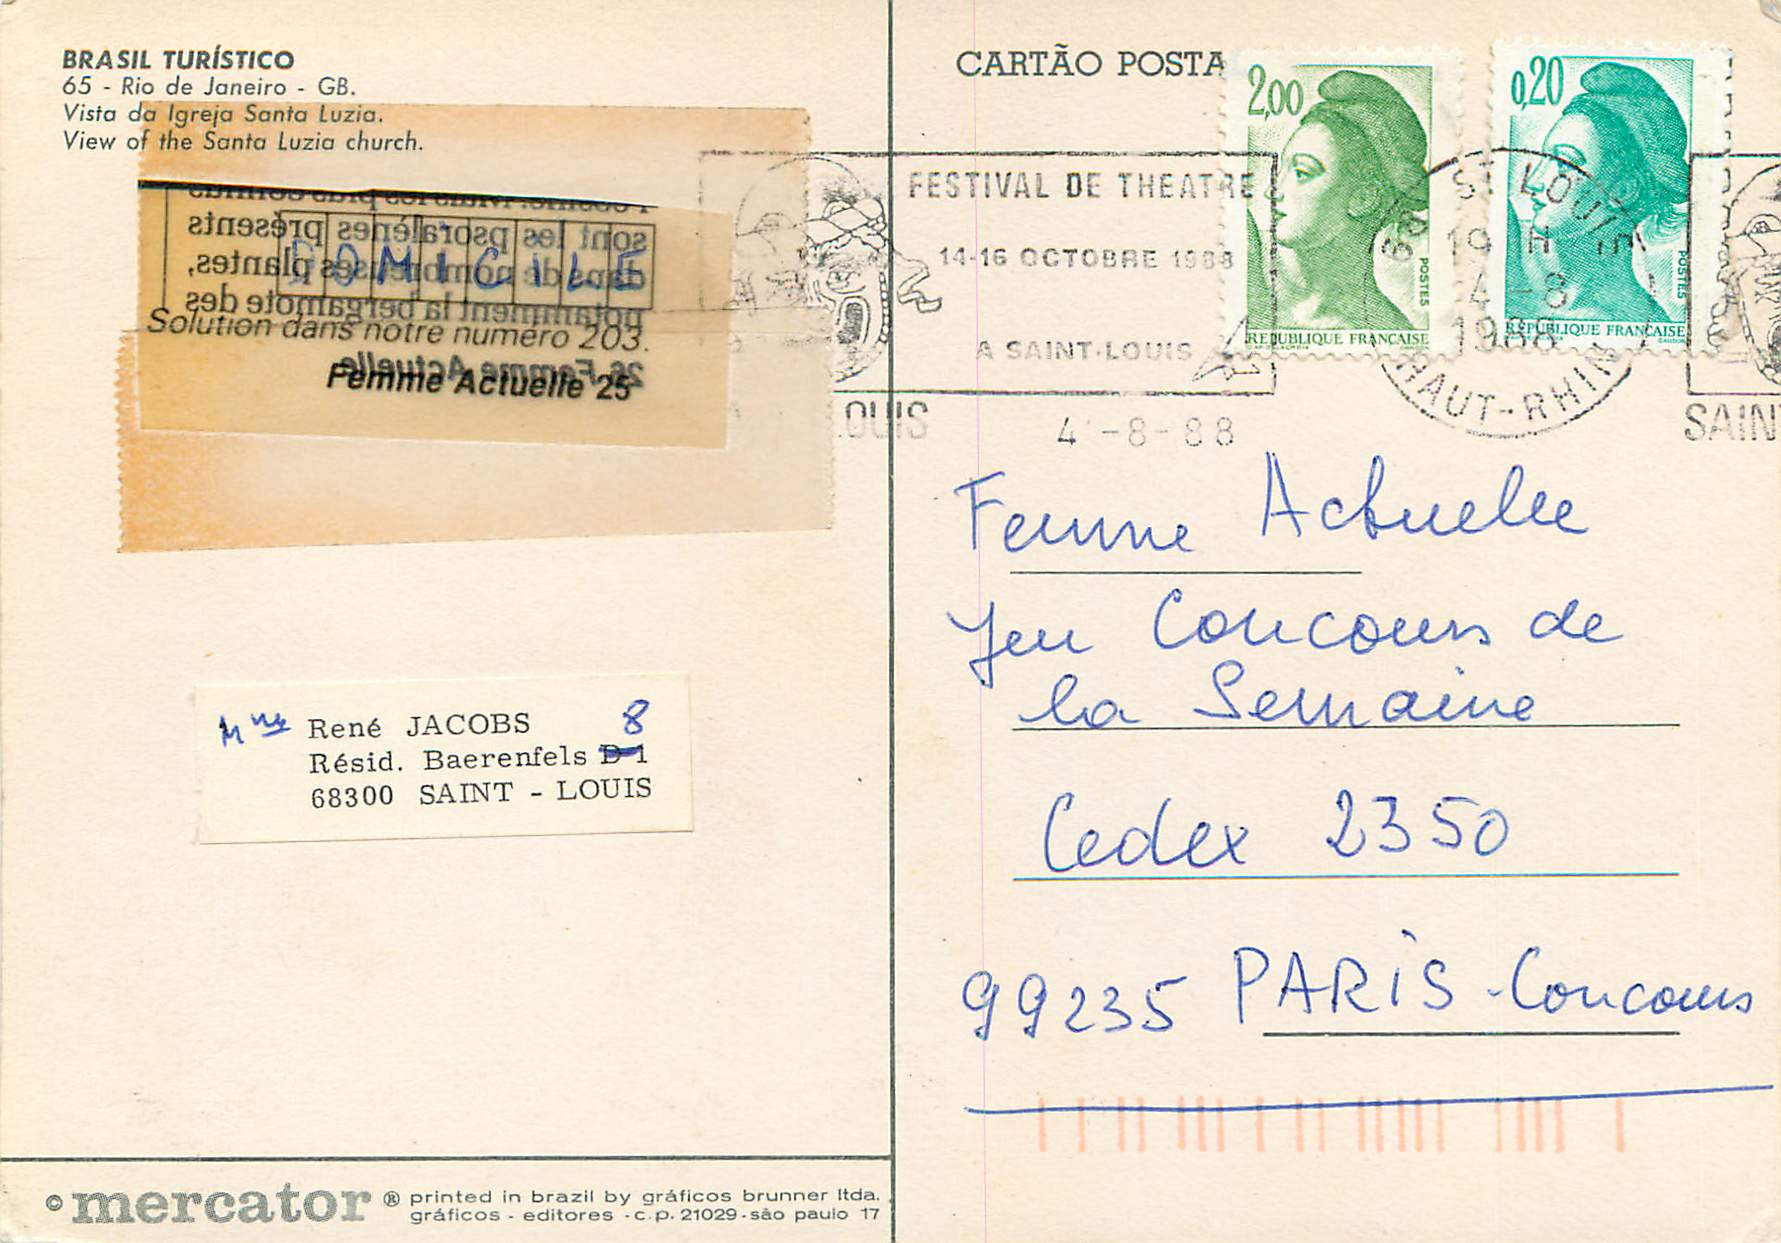 BRASIL TURÍSTICO
65 - Rio de Janeiro - GB.
Vista da Igreja Santa Luzia.
View of the Santa Luzia church.
sont les psoralènes présents
dans de nombreuses plantes,
notamment la bergamote des
DOMICILE
Solution dans notre numéro 203.
26 Femme Actuelle
Femme Actuelle 25
Mme René JACOBS 8
Résid. Baerenfels D-1
68300 SAINT - LOUIS
© mercator ® printed in brazil by gráficos brunner ltda.
gráficos - editores - c.p. 21029 - são paulo 17
CARTÃO POSTA
2,00
POSTES
REPUBLIQUE FRANÇAISE
0,20
POSTES
REPUBLIQUE FRANÇAISE
FESTIVAL DE THEATRE
14-16 OCTOBRE 1988
A SAINT-LOUIS
LOUIS
4 -8-88
68 ST LOUIS
19 H
4 -8
1988
HAUT-RHIN
SAIN
Femme Actuelle
Jeu Concours de
la Semaine
Cedex 2350
99235 PARIS - Concours